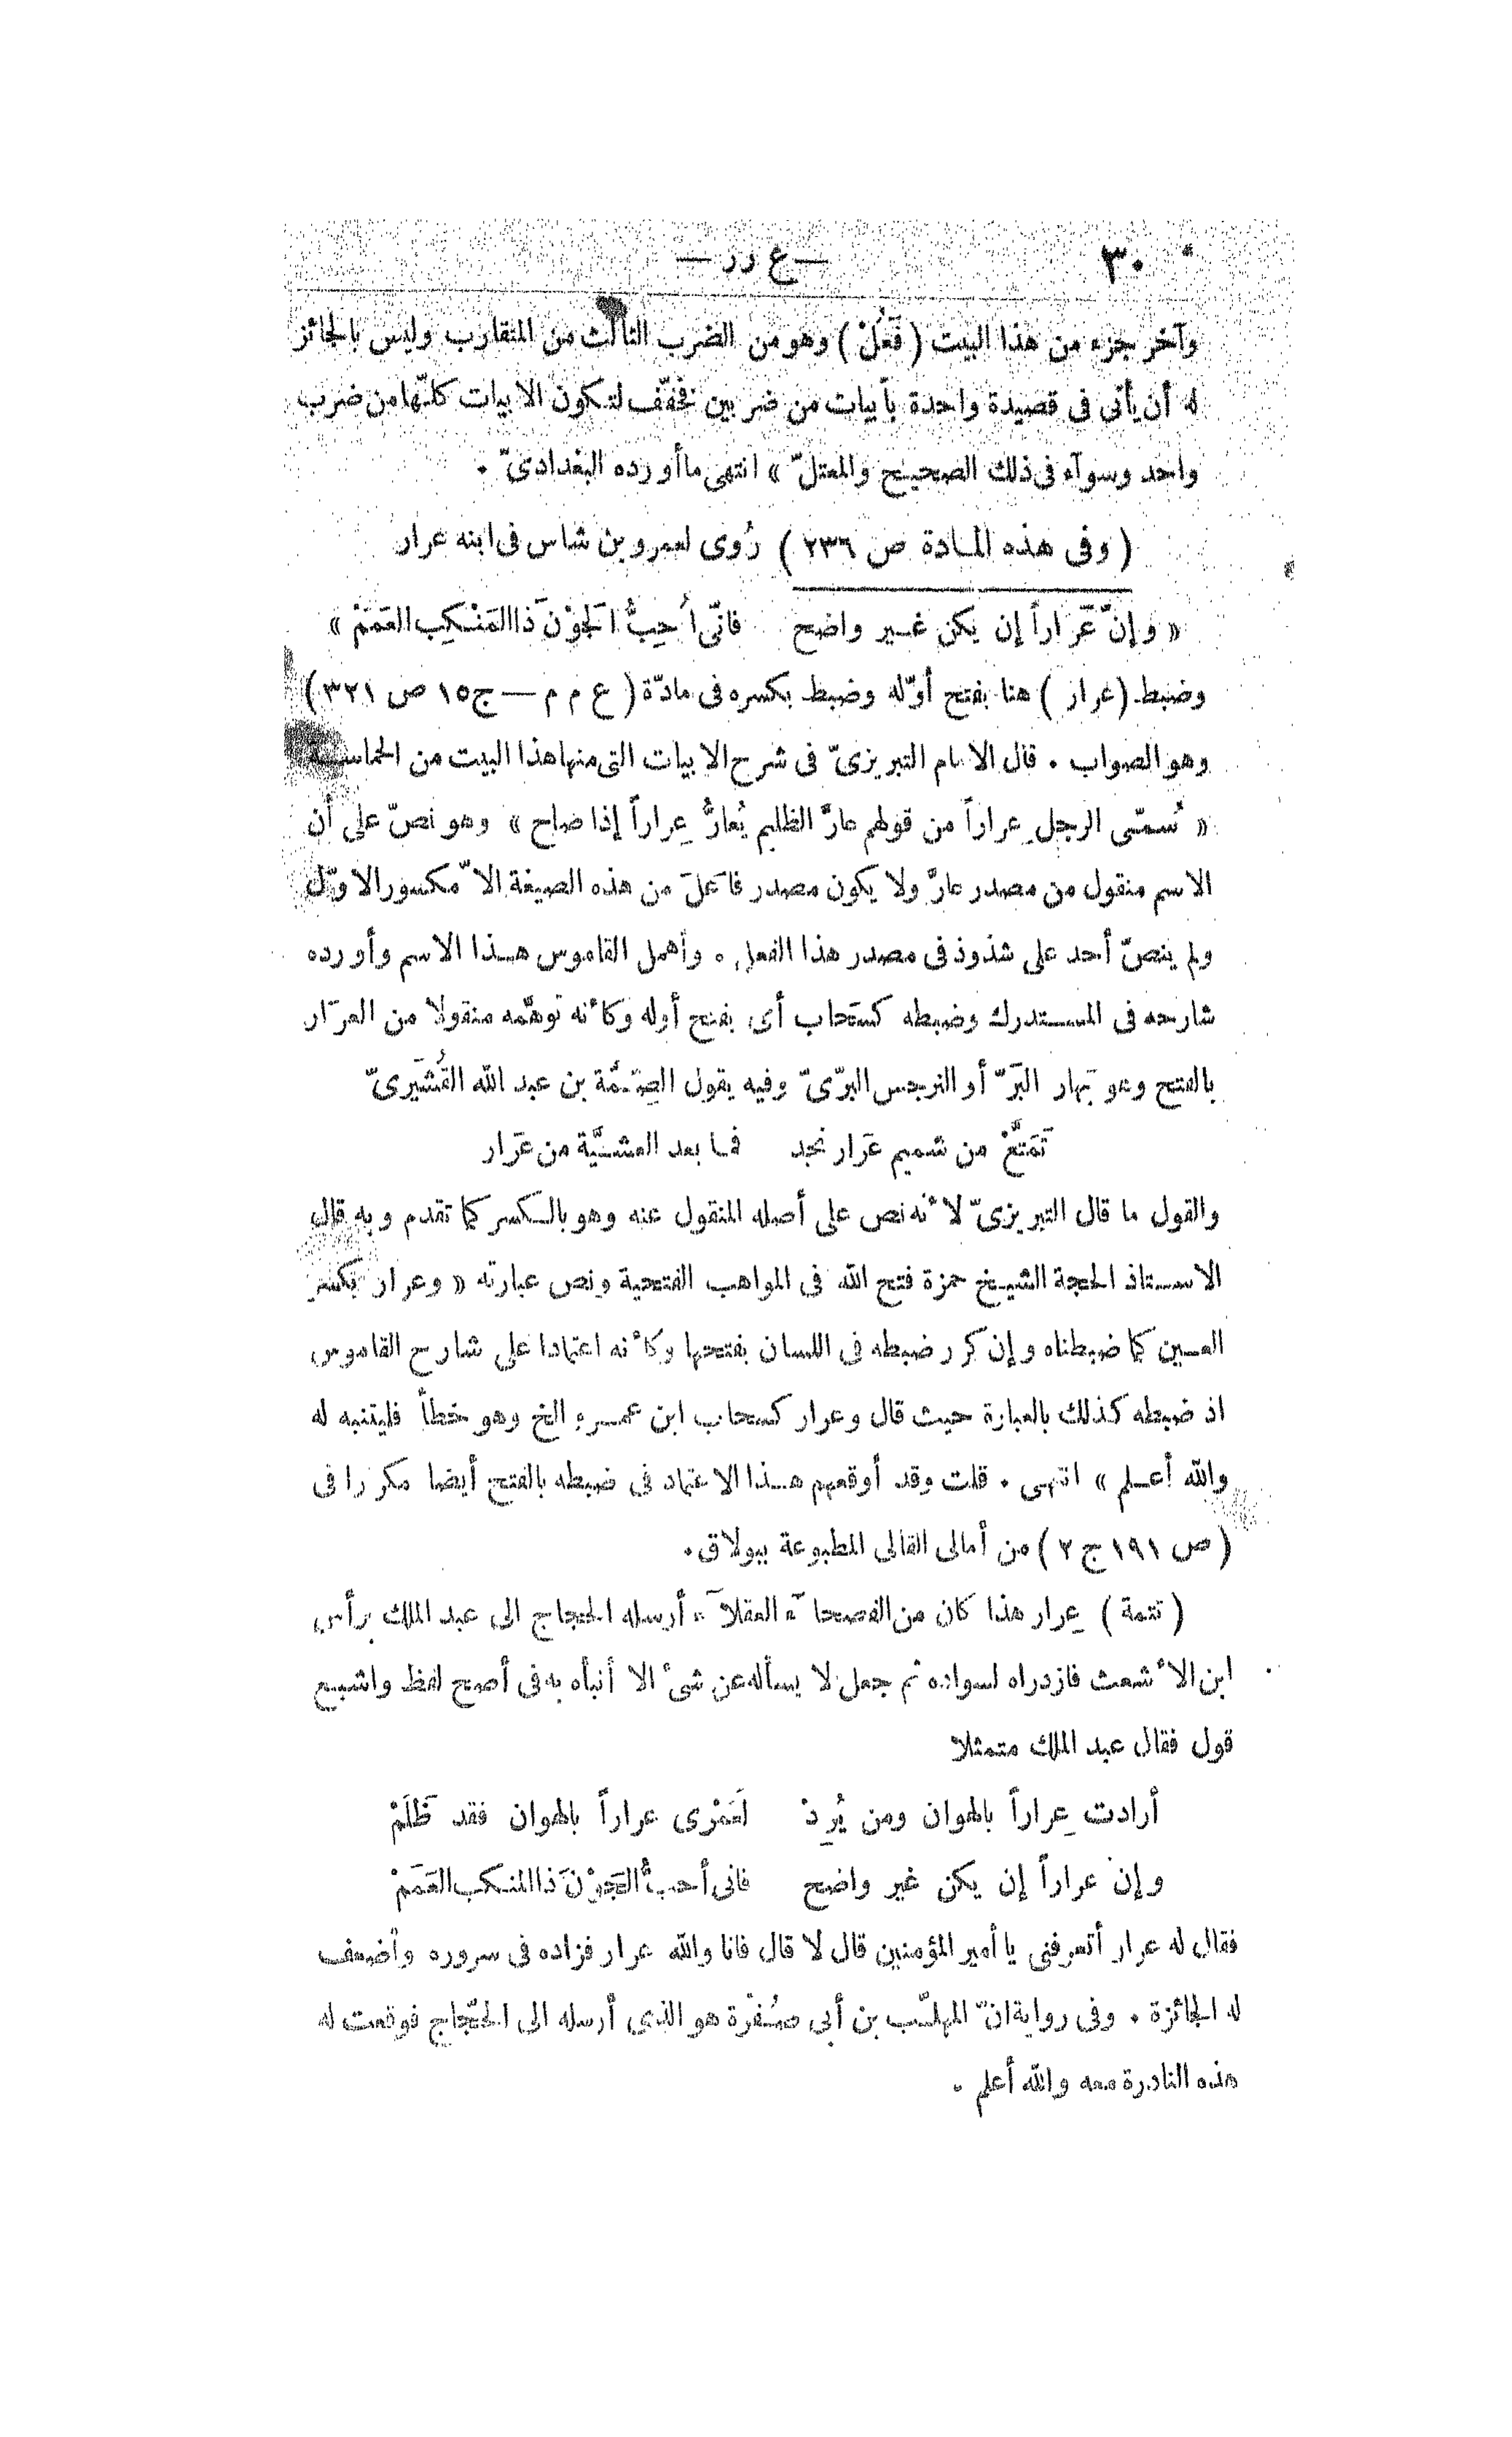 ٣٠ — ع رر —
وآخر جزء من هذا البيت ( فَعُلْ ) وهو من الضرب الثالث من المتقارب وليس بالجائز
له أن يأتى فى قصيدة واحدة بأبيات من ضربين فخفّف لتكون الابيات كلّها من ضرب
واحد وسوآء فى ذلك الصحيح والمعتلّ » انتهى ما أورده البغدادىّ .
( وفى هذه المادة ص ٢٣٦ ) رُوى لعمرو بن شاس فى ابنه عرار
« وإنّ عَراراً إن يكن غير واضح فانّى أُحِبُّ الجَوْنَ ذا المَنْكِب العَمَمْ »
وضبط (عرار ) هنا بفتح أوّله وضبط بكسره فى مادّة ( ع م م — ج١٥ ص ٣٢١ )
وهو الصواب . قال الامام التبريزىّ فى شرح الابيات التى منها هذا البيت من الحماسة
« سُمّى الرجل عِراراً من قولهم عارَّ الظليم يُعارُّ عِراراً إذا صاح » وهو نصّ على أن
الاسم منقول من مصدر عارَّ ولا يكون مصدر فاعَلَ من هذه الصيغة الاّ مكسور الاوّل
ولم ينصّ أحد على شذوذ فى مصدر هذا الفعل . وأهمل القاموس هذا الاسم وأورده
شارحه فى المستدرك وضبطه كسَحاب أى بفتح أوله وكأنه توهّمه منقولا من العرَار
بالفتح وهو بَهار البَرّ أو النرجس البرّىّ وفيه يقول الصِمَّة بن عبد الله القُشَيرىّ
تَمَتَّعْ من شميم عَرار نجد فما بعد العشيَّة من عَرار
والقول ما قال التبريزىّ لأنه نص على أصله المنقول عنه وهو بالكسر كما تقدم وبه قال
الاستاذ الحجة الشيخ حمزة فتح الله فى المواهب الفتحية ونص عبارته « وعرار بكسر
العين كما ضبطناه وإن كرر ضبطه فى اللسان بفتحها وكأنه اعتمادا على شارح القاموس
اذ ضبطه كذلك بالعبارة حيث قال وعرار كسحاب ابن عمرو الخ وهو خطأ فليتنبه له
والله أعلم » انتهى . قلت وقد أوقعهم هذا الاعتماد فى ضبطه بالفتح أيضا مكررا فى
( ص ١٩١ ج ٢ ) من أمالى القالى المطبوعة ببولاق.
( تتمة ) عِرار هذا كان من الفصحآء العقلآء أرسله الحجاج الى عبد الملك برأس
ابن الأشعث فازدراه لسواده ثم جعل لا يسأله عن شىء الا أنبأه به فى أصح لفظ واشبع
قول فقال عبد الملك متمثلا
أرادت عِراراً بالهوان ومن يُرِدْ لَعَمْرى عراراً بالهوان فقد ظَلَمْ
وإن عراراً إن يكن غير واضح فانى أحبُّ الجَوْنَ ذا المنكب العَمَمْ
فقال له عرار أتعرفنى يا أمير المؤمنين قال لا قال فانا والله عرار فزاده فى سروره وأضعف
له الجائزة . وفى رواية انّ المهلّب بن أبى صُفْرة هو الذى أرسله الى الحَجّاج فوقعت له
هذه النادرة معه والله أعلم .